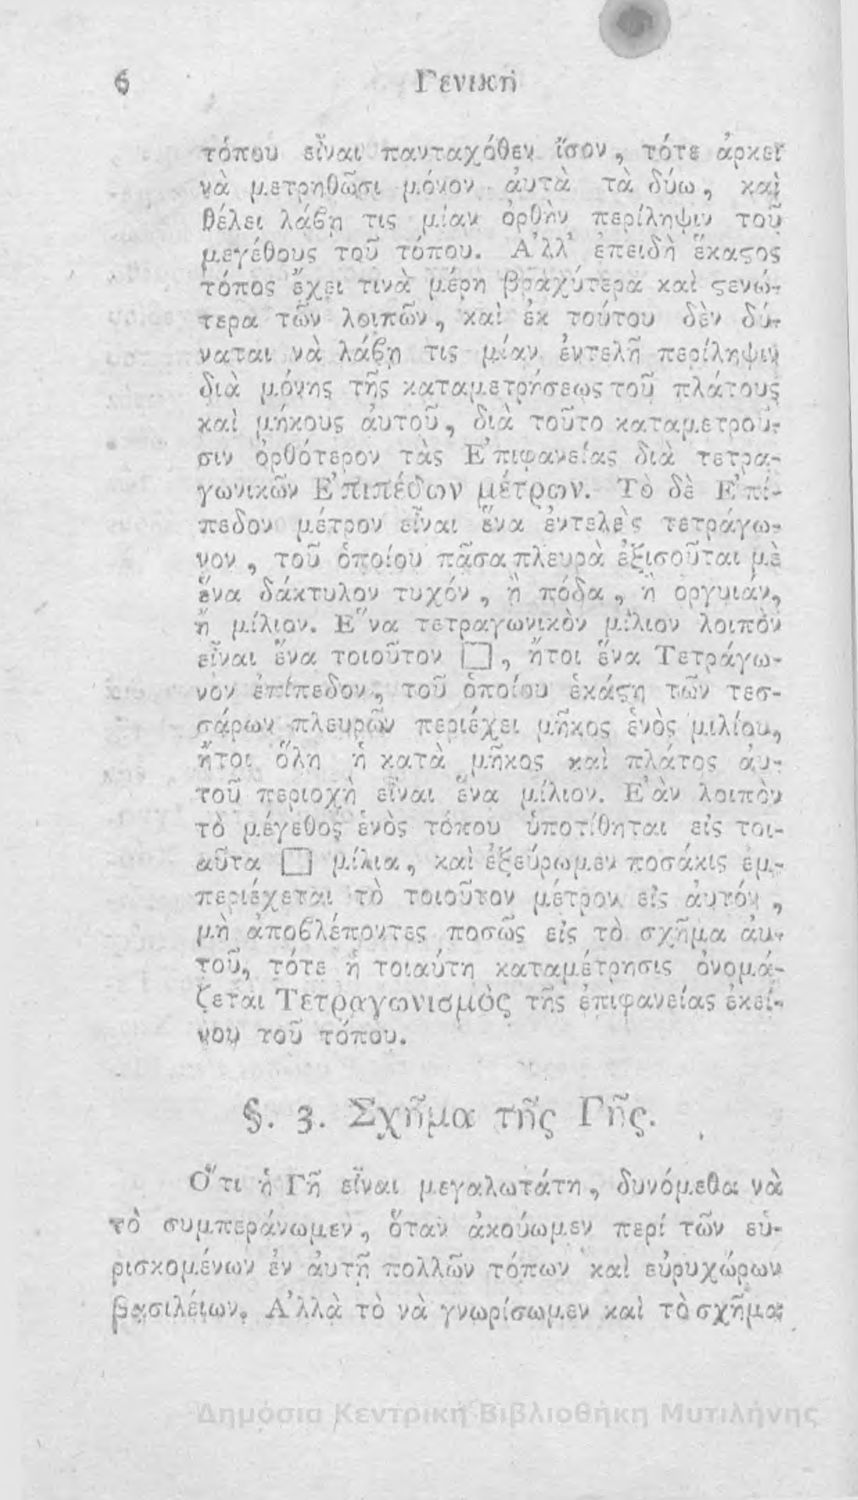 6 Γενική
τόπου εἶναι πανταχόθεν ἴσον, τότε ἀρκεῖ
νὰ μετρηθῶσι μόνον ἀυτὰ τὰ δύω, καὶ
θέλει λάβῃ τις μίαν ὀρθὴν περίληψιν τοῦ
μεγέθους τοῦ τόπου. Ἀλλ' ἐπειδὴ ἕκαϛος
τόπος ἔχει τινὰ μέρη βραχύτερα καὶ ϛενώ-
τερα τῶν λοιπῶν, καὶ ἐκ τούτου δὲν δύ-
ναται νὰ λάβῃ τις μίαν ἐντελῆ περίληψιν
διὰ μόνης τῆς καταμετρήσεως τοῦ πλάτους
καὶ μήκους ἀυτοῦ, διὰ τοῦτο καταμετροῦ-
σιν ὀρθότερον τὰς Ἐπιφανείας διὰ τετρα-
γωνικῶν Ἐπιπέδων μέτρων. Τὸ δὲ Ἐπί-
πεδον μέτρον εἶναι ἕνα ἐντελὲς τετράγω-
νον, τοῦ ὁποίου πᾶσα πλευρὰ ἐξισοῦται μὲ
ἕνα δάκτυλον τυχόν, ἢ πόδα, ἢ οργυιάν,
ἢ μίλιον. Ἕνα τετραγωνικὸν μίλιον λοιπὸν
εἶναι ἕνα τοιοῦτον □, ἤτοι ἕνα Τετράγω-
νον ἐπίπεδον, τοῦ ὁποίου ἑκάϛη τῶν τεσ-
σάρων πλευρῶν περιέχει μῆκος ἑνὸς μιλίου,
ἤτοι ὅλη ἡ κατὰ μῆκος καὶ πλάτος ἀυ-
τοῦ περιοχὴ εἶναι ἕνα μίλιον. Ἐὰν λοιπὸν
τὸ μέγεθος ἑνὸς τόπου ὑποτίθηται εἰς τοι-
αῦτα □ μίλια, καὶ ἐξεύρωμεν ποσάκις ἐμ-
περιέχεται τὸ τοιοῦτον μέτρον εἰς ἀυτόν,
μὴ ἀποβλέποντες ποσῶς εἰς τὸ σχῆμα ἀυ-
τοῦ, τότε ἡ τοιαύτη καταμέτρησις ὀνομά-
ζεται Τετραγωνισμὸς τῆς ἐπιφανείας ἐκεί-
νου τοῦ τόπου.
§. 3. Σχῆμα τῆς Γῆς.
Ὅτι ἡ Γῆ εἶναι μεγαλωτάτη, δυνόμεθα νὰ
τὸ συμπεράνωμεν, ὅταν ἀκούωμεν περὶ τῶν εὑ-
ρισκομένων ἐν ἀυτῇ πολλῶν τόπων καὶ εὐρυχώρων
βασιλείων. Ἀλλὰ τὸ νὰ γνωρίσωμεν καὶ τὸ σχῆμα
Δημόσια Κεντρική Βιβλιοθήκη Μυτιλήνης